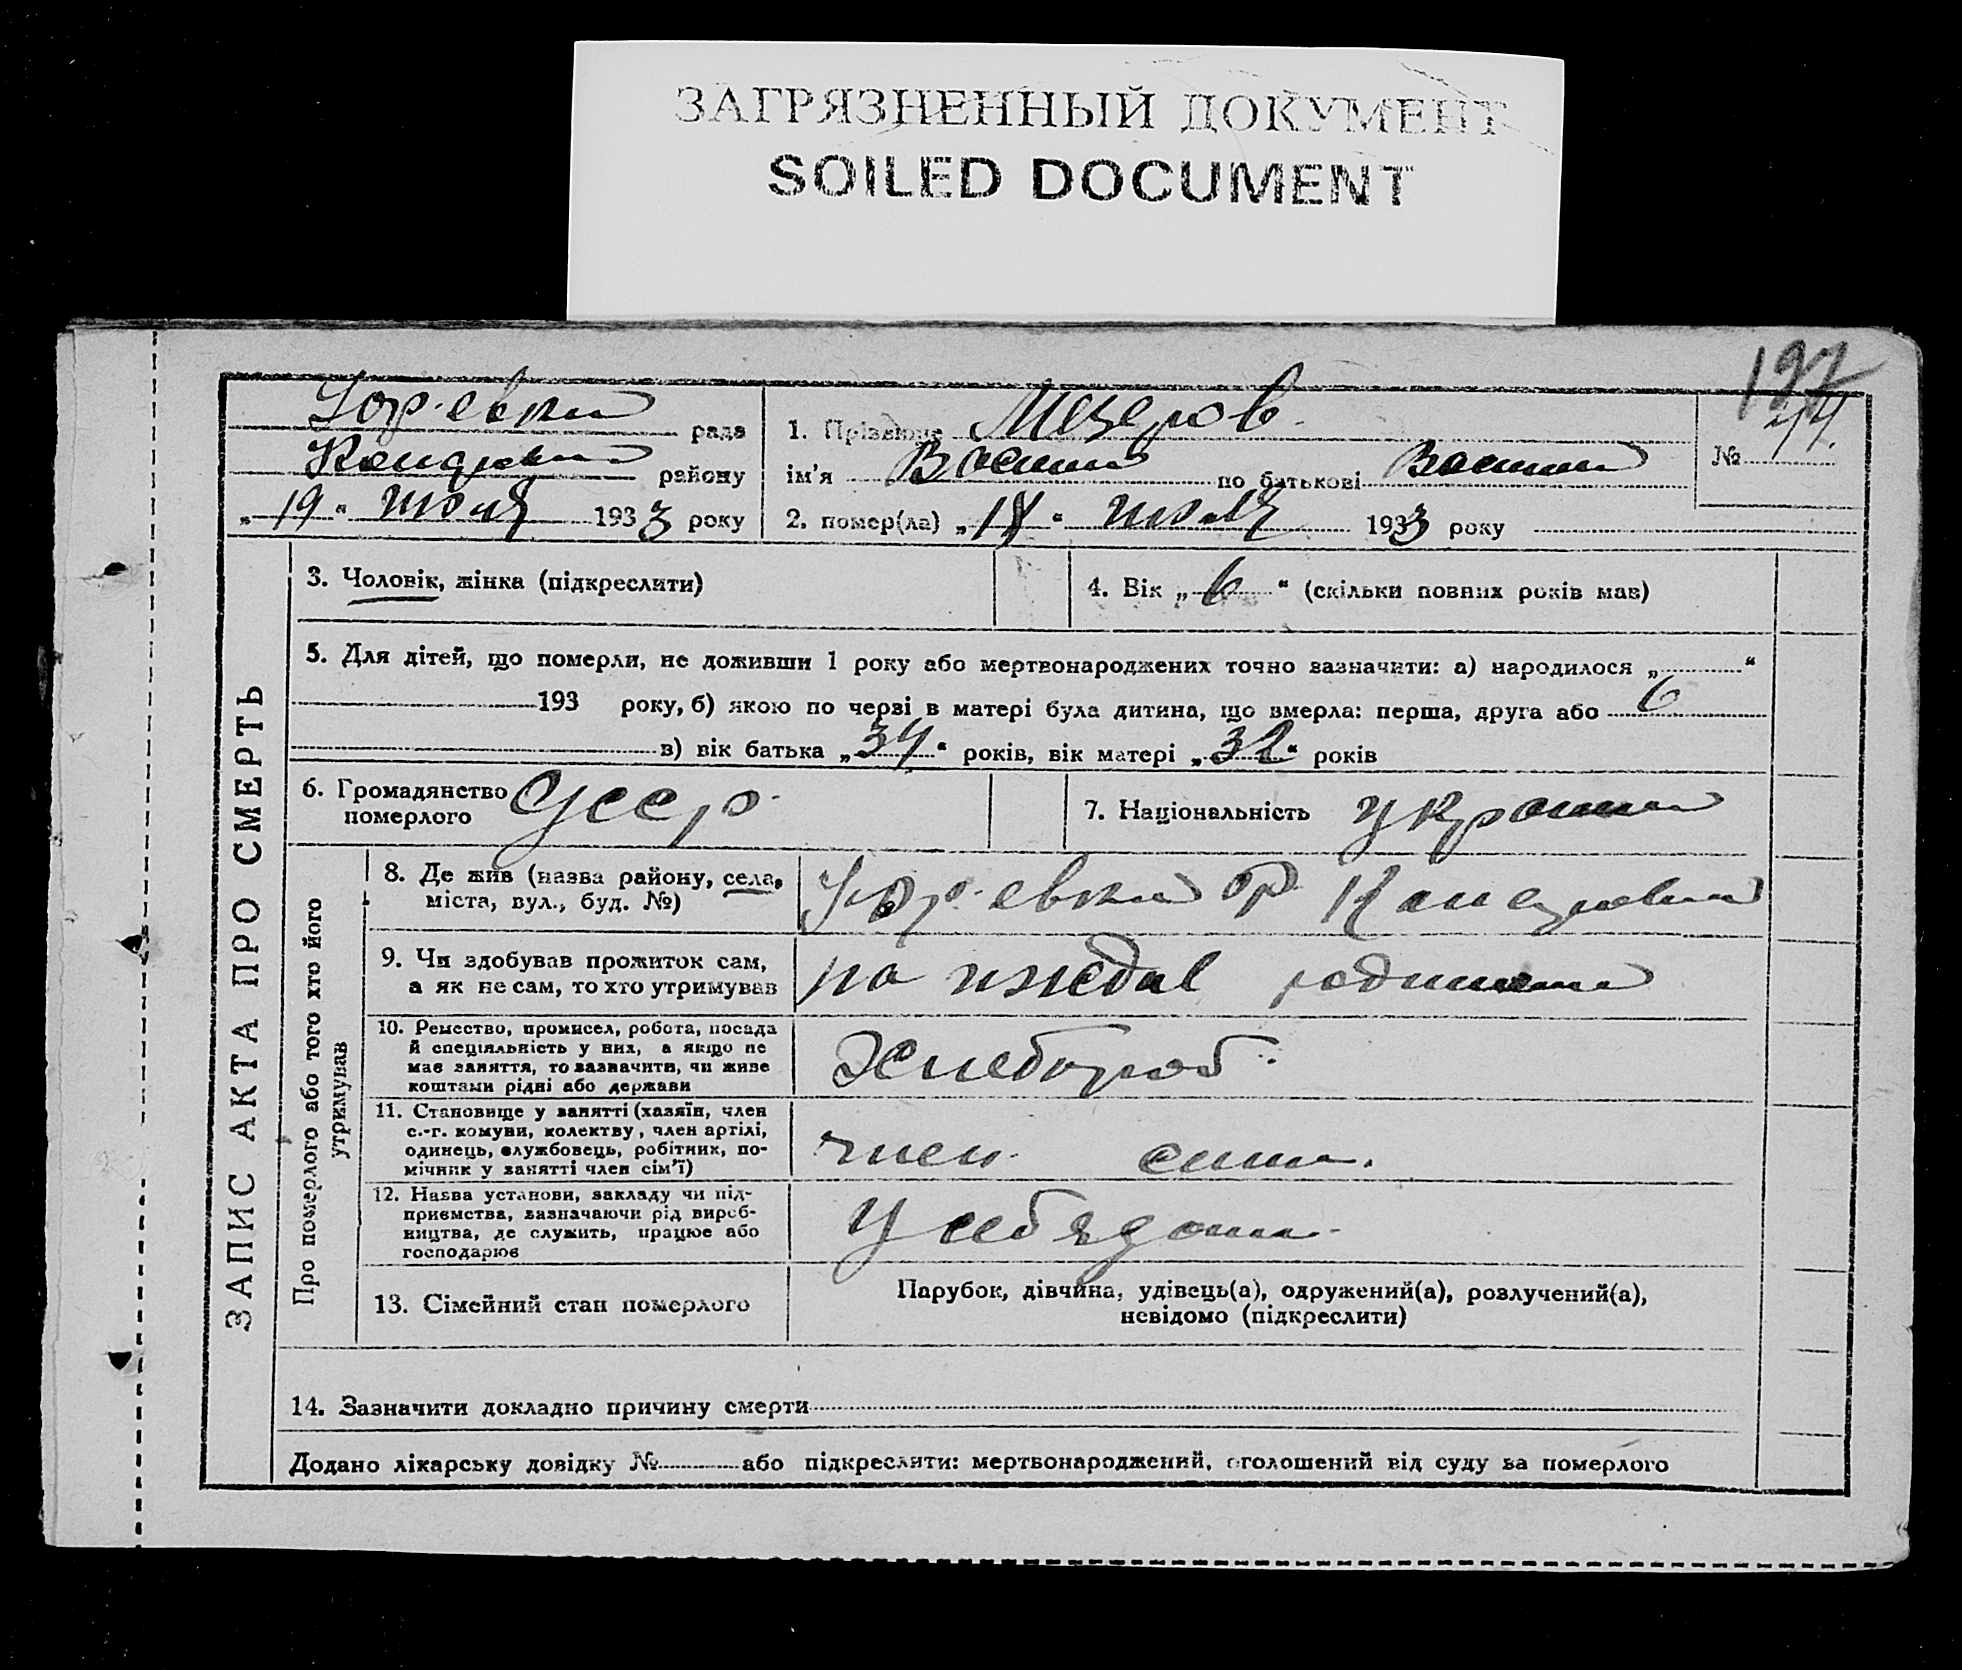 ЗАГРЯЗНЕННЫЙ ДОКУМЕНТ
SOILED DOCUMENT
197
рада
району
„19“ июля 1933 року
1. Прізвище Мезеров
ім'я по батькові
2. помер(ла) „18“ июля 1933 року
№ 44
ЗАПИС АКТА ПРО СМЕРТЬ
3. Чоловік, жінка (підкреслити)
4. Вік „6“ (скільки повних років мав)
5. Для дітей, що померли, не доживши 1 року або мертвонароджених точно зазначити: а) народилося „ “
193 року, б) якою по черзі в матері була дитина, що вмерла: перша, друга або 6
в) вік батька „34“ років, вік матері „32“ років
6. Громадянство померлого Усср
7. Національність
Про померлого або того хто його утримував
8. Де жив (назва району, села,
міста, вул., буд. №)
9. Чи здобував прожиток сам,
а як не сам, то хто утримував
на иждев
10. Ремество, промисел, робота, посада
й спеціяльність у них, а якщо не
має заняття, то зазначити, чи живе
коштами рідні або держави
Хлебороб
11. Становище у занятті (хазяїн, член
с.-г. комуни, колектву, член артілі,
одинець, службовець, робітник, по-
мічник у занятті член сім'ї)
член
12. Назва установи, закладу чи під-
приємства, зазначаючи рід вироб-
ництва, де служить, працює або
господарює
13. Сімейний стан померлого
Парубок, дівчина, удівець(а), одружений(а), розлучений(а),
невідомо (підкреслити)
14. Зазначити докладно причину смерти
Додано лікарську довідку № або підкреслити: мертвонароджений, оголошений від суду за померлого